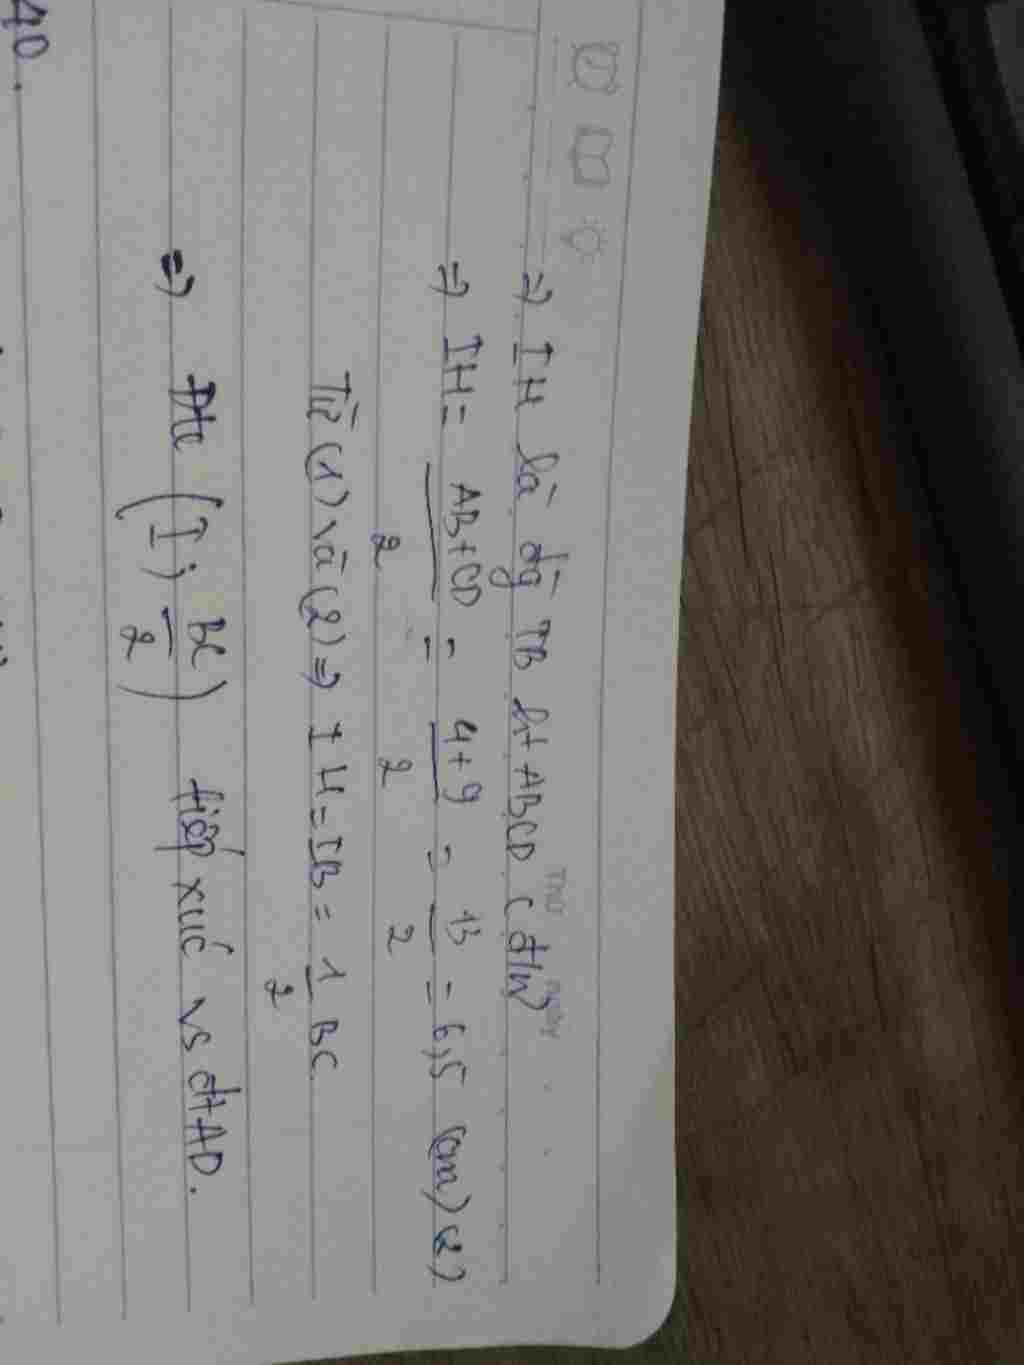 Thứ ngày
=> IH là đg TB ht ABCD (đ/n)
=> IH = AB+CD/2 = 4+9/2 = 13/2 = 6,5 (cm) (2)
Từ (1) và (2) => IH = IB = 1/2 BC
=> Đtr (I; BC/2) tiếp xúc vs đt AD.
40.